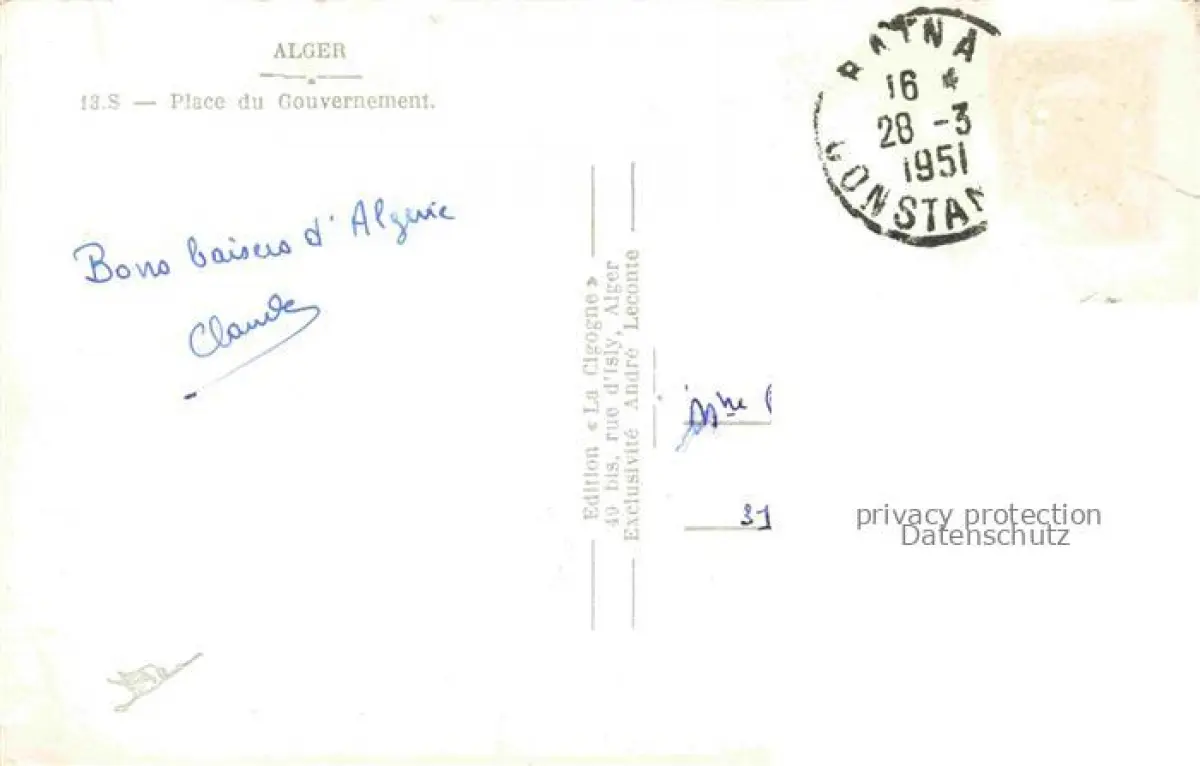 ALGER
13.S — Place du Gouvernement.
Bons baisers d'Algerie
Claude
Edition « La Cigogne »
40 bis, rue d'Isly, Alger
Exclusivité André Leconte
BATNA
16 *
28 -3
1951
CONSTAN
Mme
31
privacy protection
Datenschutz